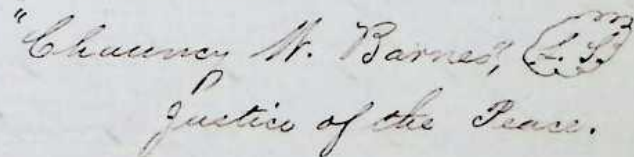 "Chauncy W. Barnes", L.S.
Justice of the Peace.